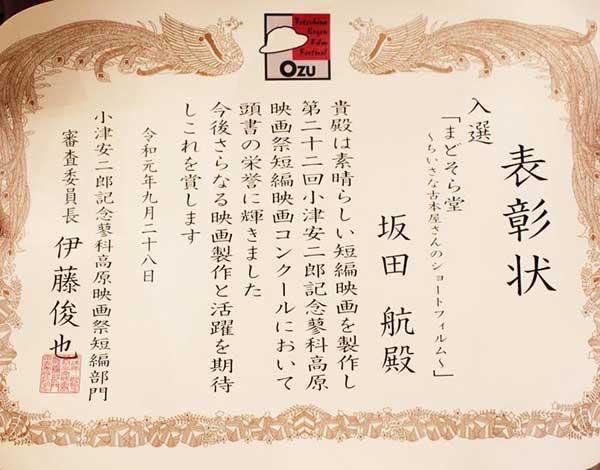 Tateshina
Kogen
Film
Festival
OZU
表彰状
入選
「まどそら堂
～ちいさな古本屋さんのショートフィルム～」
坂田 航殿
貴殿は素晴らしい短編映画を製作し
第二十二回小津安二郎記念蓼科高原
映画祭短編映画コンクールにおいて
頭書の栄誉に輝きました
今後さらなる映画製作と活躍を期待
しこれを賞します
令和元年九月二十八日
小津安二郎記念蓼科高原映画祭短編部門
審査委員長 伊藤俊也